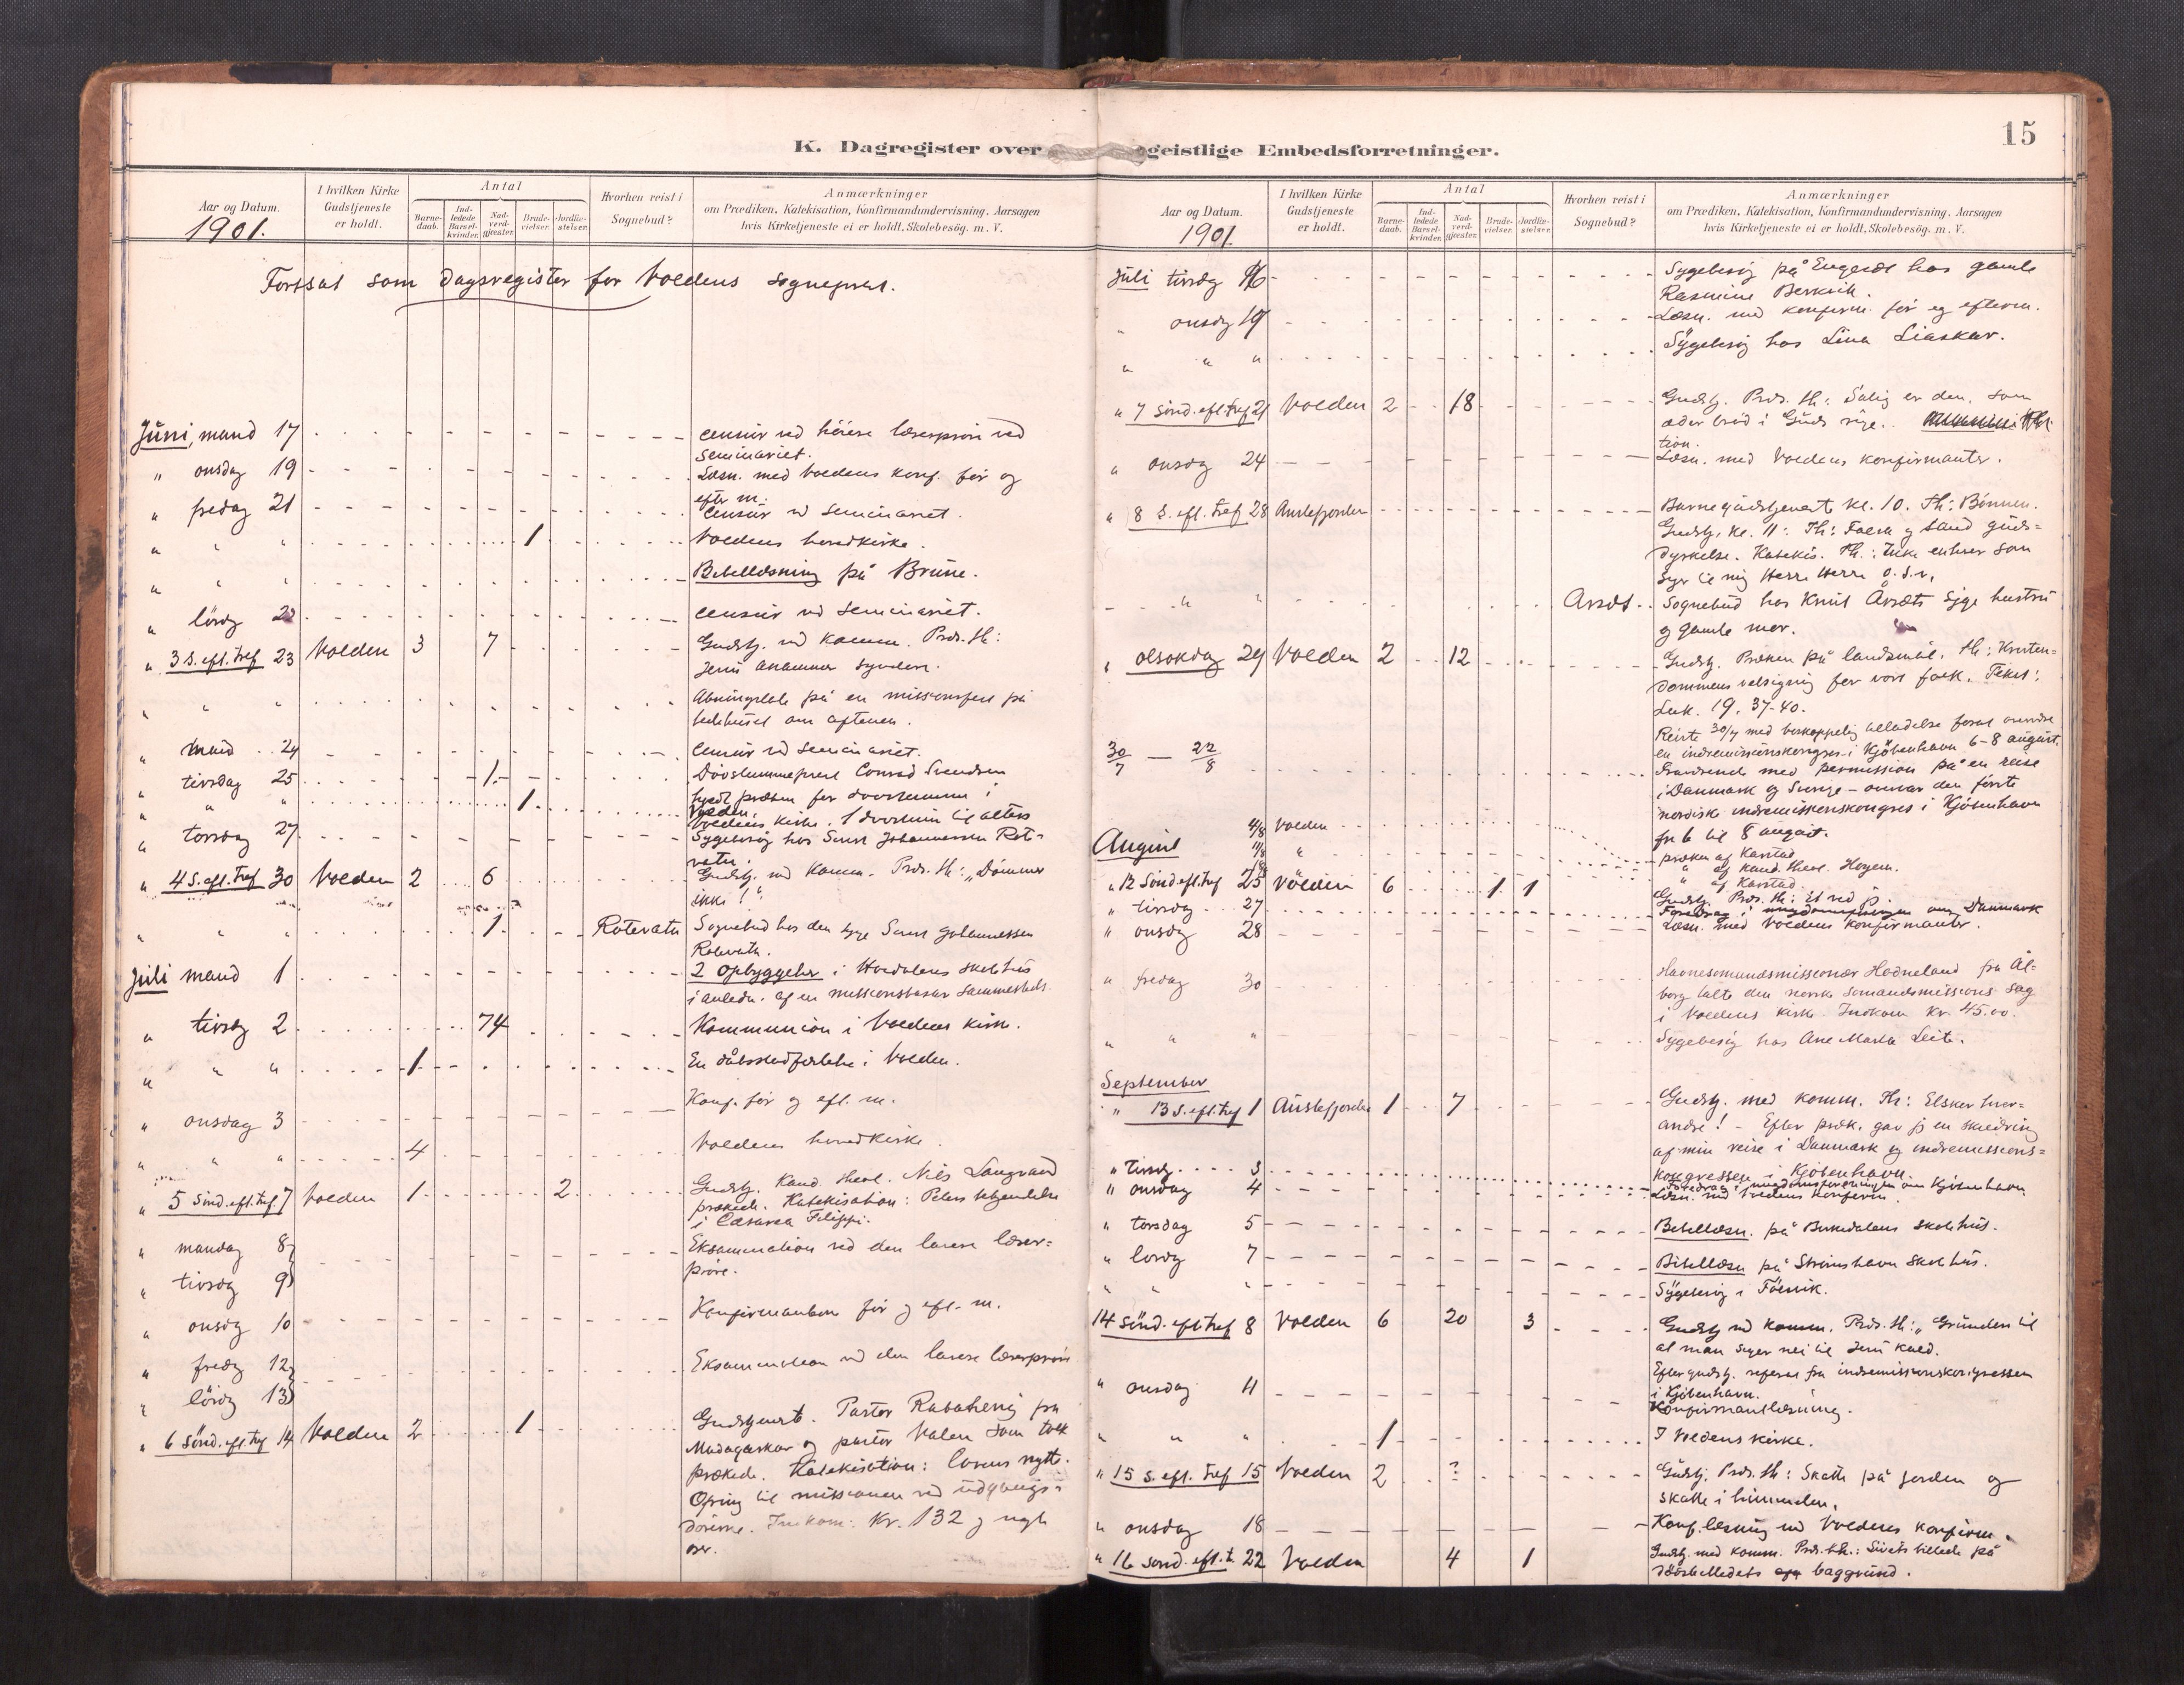 K. Dagregister over geistlige Embedsforretninger.
15
Aar og Datum.
1901.
I hvilken Kirke Gudstjeneste er holdt.
Antal
Barne-daab.
Ind-ledede Barsel-kvinder.
Nad-verd-gjæster.
Brude-vielser.
Jordfæ-stelser.
Hvorhen reist i Sognebud?
Anmærkninger
om Prædiken, Katekisation, Konfirmandundervisning, Aarsagen
hvis Kirketjeneste ei er holdt, Skolebesög. m. V.
Fortsat som dagsregister for Voldens sogneprest.
Juni, mand 17 censur ved höiere læreprøve ved
seminariet.
" onsdag 19 Læsn. med Voldens konf. för og
efter m.
" fredag 21 Censur v. seminariet.
" " " 1 Voldens hovedkirke.
" " " Bibellæsning på Brune.
" lörd 22 Censur ved seminariet.
" 3 s. eft. tref 23 Volden 3 7 Gudstj. md komm. Præd. th:
Jesu annammer syndere.
" " " på en missionsfest på
bedehuset om aftenen.
" mand 24 Censur ved seminariet.
" tirsdag 25 1 Dövstummeprest Conrad Svendsen
præken for dövstumme i
Volden.
" " " 1 Voldens kirke. 1 dövstum til alters
" torsdag 27 Sygebesög hos Johannessen Rot-
vatn.
" 4 S. eft. tref 30 Volden 2 6 Gudstj. md komm. Præd. th: "Dömmer
ikke!"
" " " 1 Rotevatn Sognebud hos den syge Johannessen
Rotevatn.
Juli mand 1 2 opbyggelser i Herdalens skolehus
i anledn. af en missionsbasar sammesteds.
" tirsdg 2 74 Kommunion i Voldens kirke.
" " " 1 En dåbsstadfæstelse i Volden.
" onsdag 3 Konf. för og eft. m.
" " " 4 Voldens hovedkirke.
" 5 Sönd. eft. tref. 7 Volden 1 2 Gudstj. Kand. theol. Nils Langvand
prækede. Katekisation: Peters bekjendelse
i Cæsarea Filippi.
" mandag 8 Eksamination ved den lavere lærer-
pröve.
" tirsdg 9
" onsdg 10 Konfirmanter för og eft. m.
" fredg 12 Eksamination ved den lavere lærerpröve
" lördg 13
" 6 Sönd. eft. tref 14 Volden 2 1 Gudstjenest. Pastor fra
Madagaskar og pastor Valen som tolk
prækede. Katekisation: lovens nytte.
Ofring til missionen ved udgangs-
dörene. Indkom: Kr. 132 og nogle
ører.
Aar og Datum.
1901.
I hvilken Kirke Gudstjeneste er holdt.
Antal
Barne-daab.
Ind-ledede Barsel-kvinder.
Nad-verd-gjæster.
Brude-vielser.
Jordfæ-stelser.
Hvorhen reist i Sognebud?
Anmærkninger
om Prædiken, Katekisation, Konfirmandundervisning, Aarsagen
hvis Kirketjeneste ei er holdt, Skolebesög. m. V.
Juli tirsdg 16 Sygebesög på Engeset hos gamle
Rasmine Berkvik.
" onsdg 17 Læsn. med konfirm. för og efterm.
" " " Sygebesög hos Lina Liaskar.
" 7 sönd. eft. tref 21 Volden 2 18 Gudstj. Præd. th: Salig er den, som
æder bröd i Guds rige.
tion.
" onsdg 24 Læsn. med Voldens konfirmanter.
" 8 S. eft. tref 28 Austefjorden Barnegudstjenest kl. 10. Th: Bönnen.
Gudstj. kl. 11: Th: Falsk og sand guds-
dyrkelse. Katekis. Th: Ikke enhver som
siger til mig Herre Herre o.s.v.
" " Årsæt Sognebud hos Knut Årsæts syge hustru
og gamle mor.
" olsokdag 29 Volden 2 12 Gudstj. Præken på landsmål. th: Kristen-
dommens velsignelse for vort folk. Tekst:
Luk. 19, 37-40.
30/7 — 22/8 Reiste 30/7 med biskoppelig tilladelse forat overvære
en indremissionskongres i Kjöbenhavn 6-8 august.
Fraværende med permission på en reise
i Danmark og Sverige – overvar den förste
nordiske indremissionskongres i Kjöbenhavn
fra 6 til 8 august.
August 4/8 Volden præken af Karstad
11/8 " " af kand. theol. Hogem.
18/8 " af Karstad.
" 12 Sönd eft. tref 25 Volden 6 1 1 Gudstj. Præd. th: Et ved jeg.
" tirsdag 27 Foredrag i ungdomsforeningen om Danmark
" onsdag 28 Læsn. med Voldens konfirmanter.
" fredag 30 Havnesömandsmissionær Hodneland fra Ål-
borg talte den norske sömandsmissions sag
i Voldens kirke. Indkom Kr. 45.00.
" " " Sygebesög hos Ane Marta Leite.
September
" 13 S. eft. tref 1 Austefjorden 1 7 Gudstj. med komm. Th: Elsker hver-
andre! – Efter præk. gav jeg en skildring
af min reise i Danmark og indremissions-
kongressen i Kjöbenhavn.
" tirsdg 3 Foredrag i ungdomsforeningen om Kjöbenhavn
" onsdag 4 Læsn. med Voldens konfirm.
" torsdag 5 Bibellæsn. på Birkedalens skolehus.
" lördg 7 Bibellæsn på Strömshavn skolehus.
" " " Sygebesög i Folsvik.
14 Sönd. eft tref 8 Volden 6 20 3 Gudstj md komm. Præd. th: "Grunden til
at man siger nei til Jesu kald.
Efter gudstj. referat fra indremissionskongressen
i Kjöbenhavn.
" onsdag 11 Konfirmantlæsning.
" " " 1 I Voldens kirke.
" 15 s. eft. tref 15 Volden 2 ? Gudstj. Præd. th: Skatte på jorden og
skatte i himmelen.
" onsdag 18 Konf. læsning med Voldens konfirm.
" 16 sönd. eft. t. 22 Volden 4 1 Gudstj. med komm. Præd. th.: Livets billede på
dödsbilledets baggrund.